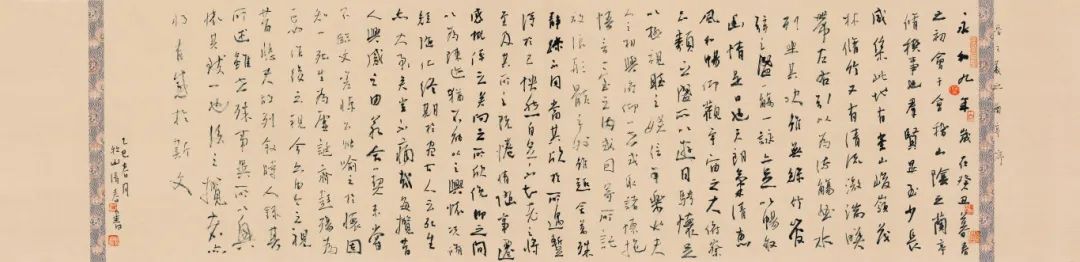 王羲之蘭亭序
永和九年歲在癸丑暮春
之初會于會稽山陰之蘭亭
脩禊事也群賢畢至少長
咸集此地有崇山峻嶺茂
林脩竹又有清流激湍映
帶左右引以為流觴曲水
列坐其次雖無絲竹管
弦之盛一觴一詠亦足以暢敘
幽情是日也天朗氣清惠
風和暢仰觀宇宙之大俯察
品類之盛所以遊目騁懷足
以極視聽之娛信可樂也夫
人之相與俯仰一世或取諸懷抱
悟言一室之內或因寄所託
放浪形骸之外雖趣舍萬殊
靜躁不同當其欣於所遇暫
得於己快然自足不知老之將
至及其所之既惓情隨事遷
感慨係之矣向之所欣俛仰之間
以為陳迹猶不能不以之興懷況脩
短隨化終期於盡古人云死生
亦大矣豈不痛哉每攬昔
人興感之由若合一契未嘗
不臨文嗟悼不能喻之於懷固
知一死生為虛誕齊彭殤為
妄作後之視今亦由今之視
昔悲夫故列敘時人錄其
所述雖世殊事異所以興
懷其致一也後之攬者亦
將有感於斯文
乙巳春月
書